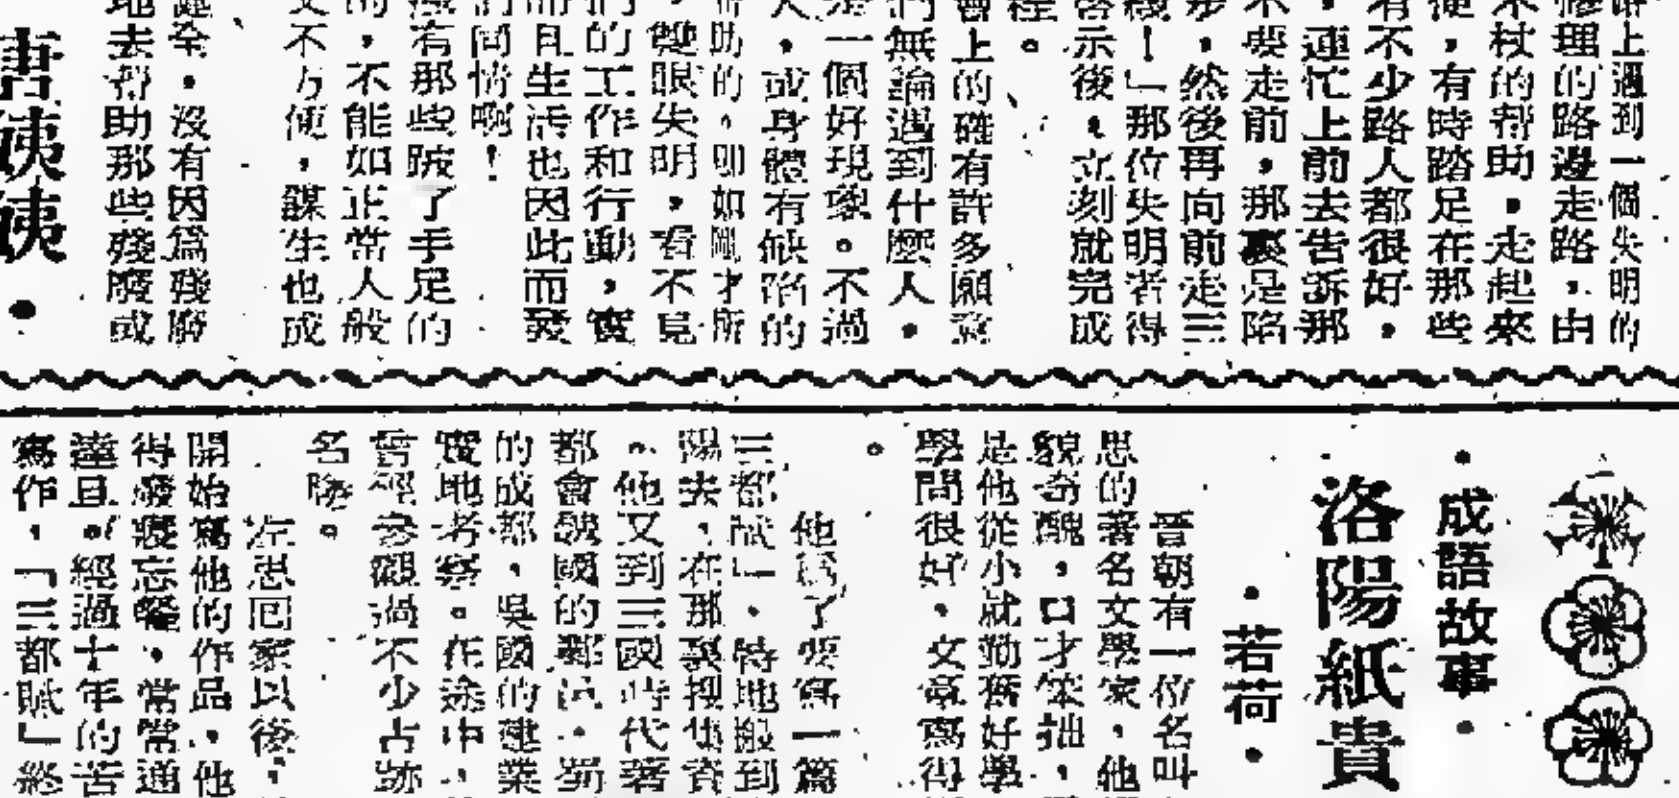 辦上遇到一個失明的
修理的路邊走路，由
木杖的帮助，走起來
便，有時踏足在那些
有不少路人都很好，
，連忙上前去告訴那
不要走前，那裏是陷
步，然後再向前走三
綫！」那位失明者得
啓示後，立刻就完成
程。
會上的確有許多願意
們無論遇到什麼人，
是一個好現象。不過
人，或身體有缺陷的
帮助的。即如剛才所
，雙眼失明，看不見
們的工作和行動，實
而且生活也因此而發
們同情啊！
沒有那些跛了手足的
的，不能如正常人般
又不方便，謀生也成
健全，沒有因爲殘廢
地去帮助那些殘廢或
唐姨姨・
・成語故事・
洛陽紙貴
・若荷・
晉朝有一位名叫
思的著名文學家，他
貌奇醜，口才笨拙，
是他從小就勤奮好學
學問很好，文章寫得
。
他爲了要寫一篇
三都賦」，特地搬到
陽去，在那裏搜集資
。他又到三國時代著
都會魏國的鄴城，蜀
的成都，吳國的建業
實地考察。在途中，
曾經參觀過不少古跡
名勝。
左思回家以後，
開始寫他的作品，他
得廢寢忘餐，常常通
達旦。經過十年的苦
寫作，「三都賦」終